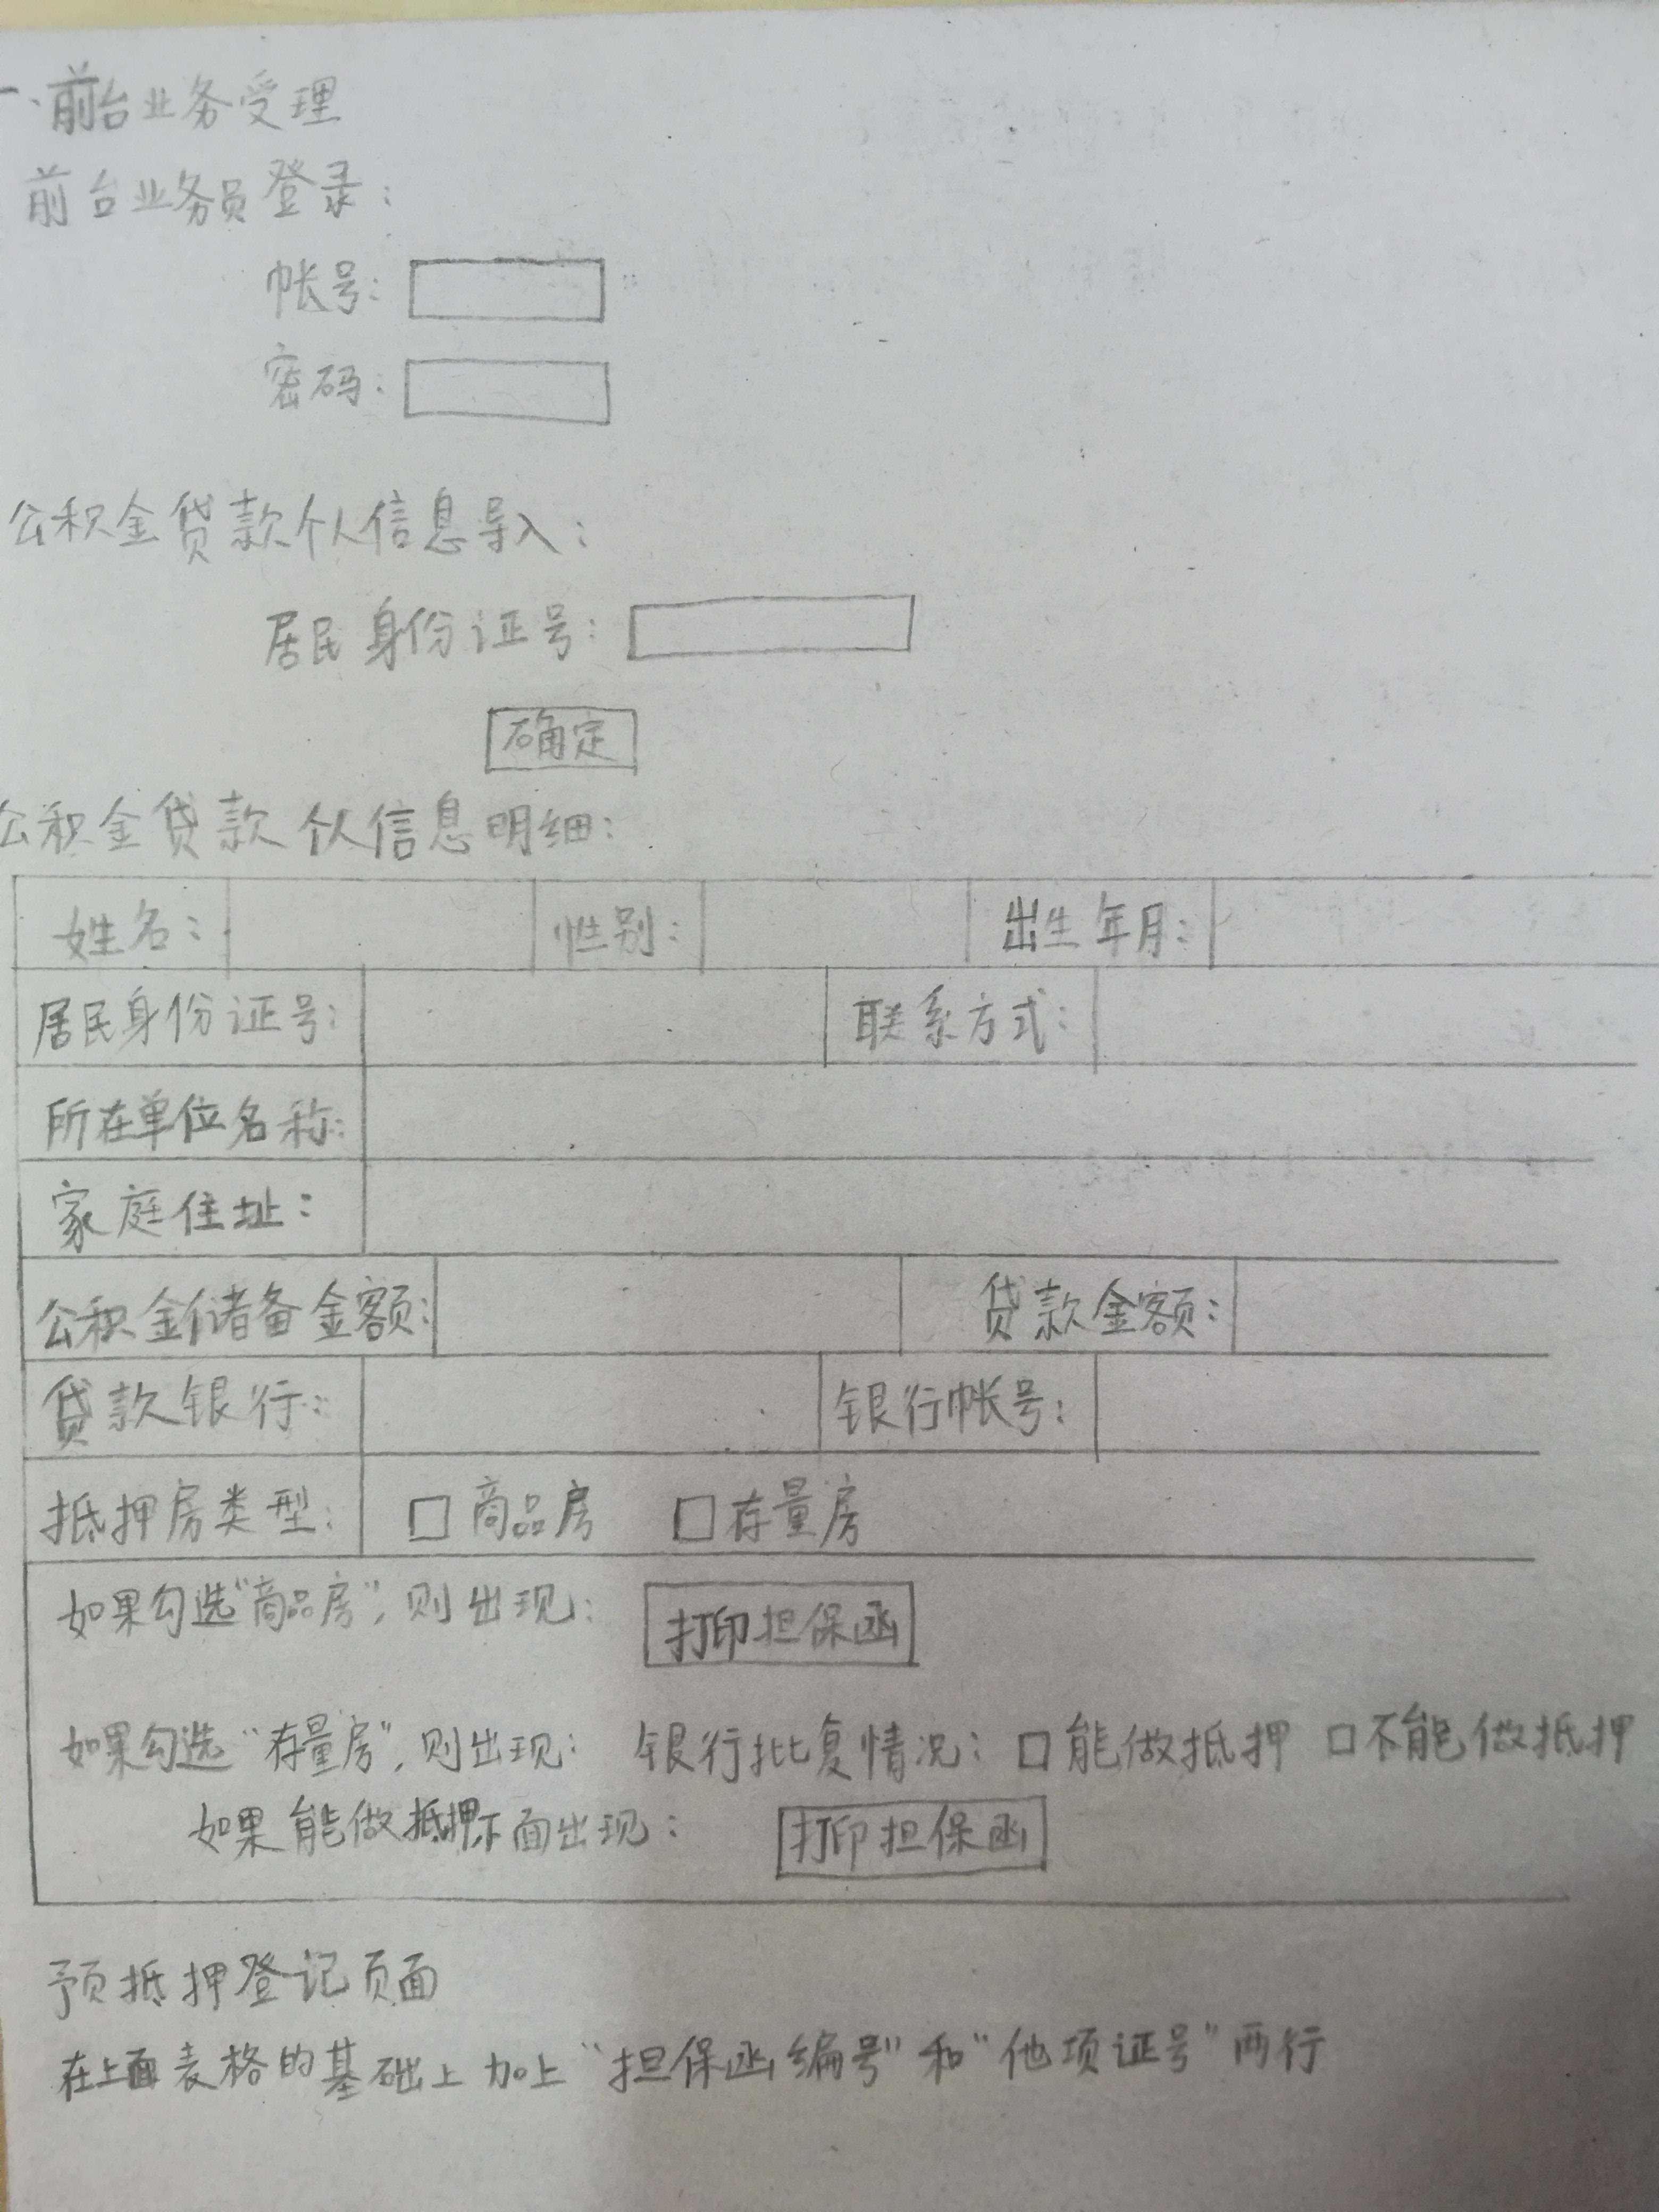 一、前台业务受理
前台业务员登录：
帐号：
密码：
公积金贷款个人信息导入：
居民身份证号：
确定
公积金贷款个人信息明细：
姓名： 性别： 出生年月：
居民身份证号： 联系方式：
所在单位名称：
家庭住址：
公积金储备金额： 贷款金额：
贷款银行： 银行帐号：
抵押房类型： □ 商品房 □ 存量房
如果勾选“商品房”，则出现： 打印担保函
如果勾选“存量房”，则出现： 银行批复情况：□ 能做抵押 □ 不能做抵押
如果能做抵押，下面出现： 打印担保函
预抵押登记页面
在上面表格的基础上加上“担保函编号”和“他项证号”两行